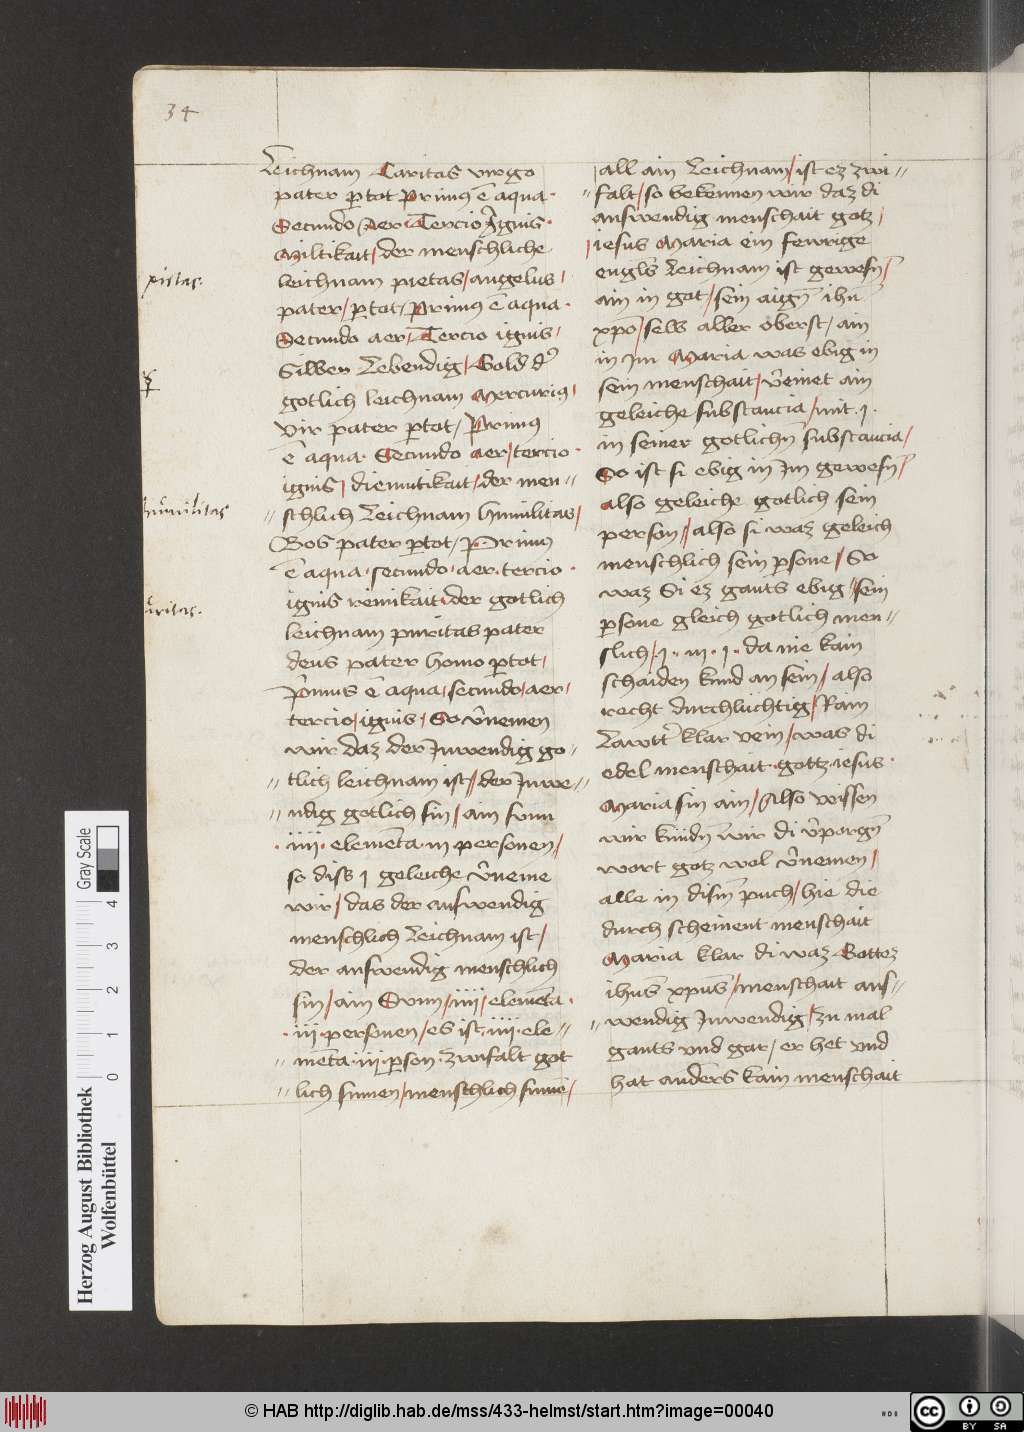 34
Leichnam Caritas virgo
pater ptot Primus ē aqua
Secundo Aer Tercio Ignis
Miltikait / der menschliche
leichnam pietas / angelus /
pater / ptot / Primus ē aqua
Secundo aer / Tercio ignis /
Silber Lebendig / Gold d'
gotlich leichnam Mercurius /
vir pater ptot / Primus
ē aqua Secundo aer / tercio
ignis / diemutikait / der men=
schlich Leichnam humilitas /
Bos pater ptot / Primus
ē aqua · secundo · aer · tercio ·
ignis reinikait der gotlich
leichnam puritas pater
deus pater homo ptot /
Primus ē aqua / secundo / aer /
tercio / ignis / So v'nemen
wir daz der Inwendig go=
tlich leichnam ist // der Inwe=
ndig gotlich sin // ain sunn
· iiii · elemēta · iii personen //
so diss 1 geleiche v'neme
wir / das der auswendig
menschlich Leichnam ist /
der auswendig menschlich
sin / ain Sunn / iiii / elemēta ·
· iii · personen / es ist · iiii · ele=
mēta · iii · pson · zwifalt got
lich sinnen / menschlich sinne /
pietas
humilitas
uritas
all ain Leichnam / ist ez zwi=
falt / so bekennen wir daz di
auswendig menschait gotz /
/ iesus Maria ein fewrige
engls Leichnam ist gewesn̄
ain in got / sein aign̄ ihn
xpō / selb aller oberst / ain
in Im Maria was ebig in
sein menschait / v'einet ain
geleiche substancia / mit · 1 ·
in seiner gotlichn̄ substancia /
So ist si ebig in Im gewesn̄
also geleiche gotlich sein
person // also si waz geleich
menschlich sein psone / So
waz Si ez gants ebig // sein
psone gleich gotlich men=
slich / · 1 · · iii · 1 · · da nie kain
schaiden kund an sein / also
recht durchluchtig / Rain
Lawtt' klar vein / was di
edel menschait · gottz · iesus ·
Maria sin ain / Also wissen
wir kündn̄ wir di v'porgn̄
wort gotz wol v'nemen /
alle in dism̄ puch / hie die
durch scheinent menschait
Maria klar di waz Gottez
ihūs xpūs / menschait aus=
wendig Inwendig / zu mal
gants vnd gar / er het vnd
hat anders kain menschait
Herzog August Bibliothek
Wolfenbüttel
0 1 2 3 4
Gray Scale
© HAB http://diglib.hab.de/mss/433-helmst/start.htm?image=00040
cc BY SA